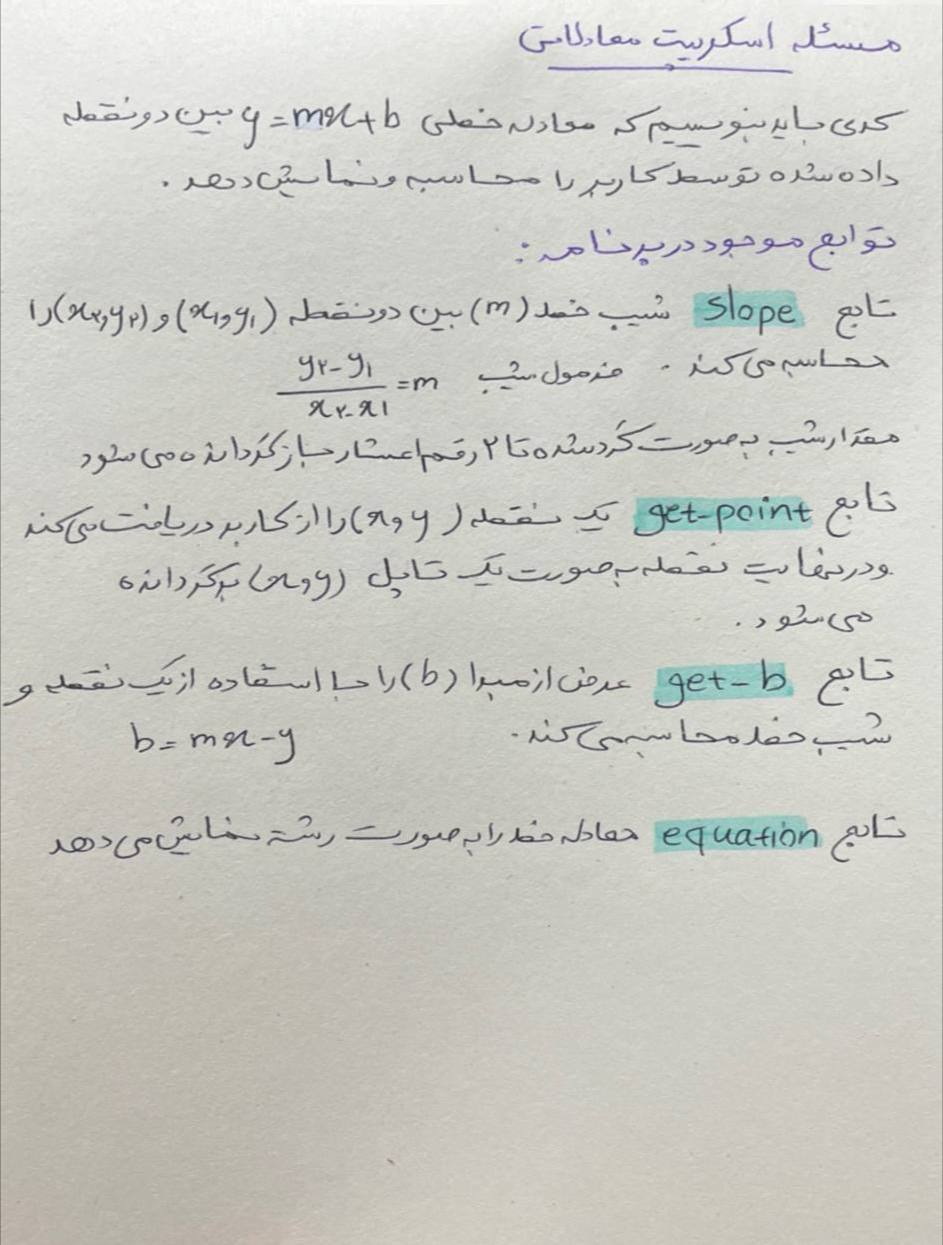 مسئله اسکریپت معادلاتی
کدی باید بنویسیم که معادله خطی y=mx+b بین دو نقطه
داده شده توسط کاربر را محاسبه و نمایش دهد.
توابع موجود در برنامه:
تابع slope شیب خط (m) بین دو نقطه (x₁,y₁) و (x₂,y₂) را
محاسبه می کند. فرمول شیب y₂-y₁/x₂-x₁ =m
مقدار شیب به صورت گرد شده تا ۲ رقم اعشار باز گردانده می شود
تابع get-point یک نقطه (x,y) را از کاربر دریافت می کند
و در نهایت نقطه به صورت یک تاپل (x,y) برگردانده
می شود.
تابع get-b عرض از مبدا (b) را با استفاده از یک نقطه و
شیب خط محاسبه می کند. b=mx-y
تابع equation معادله خط را به صورت رشته نمایش می دهد